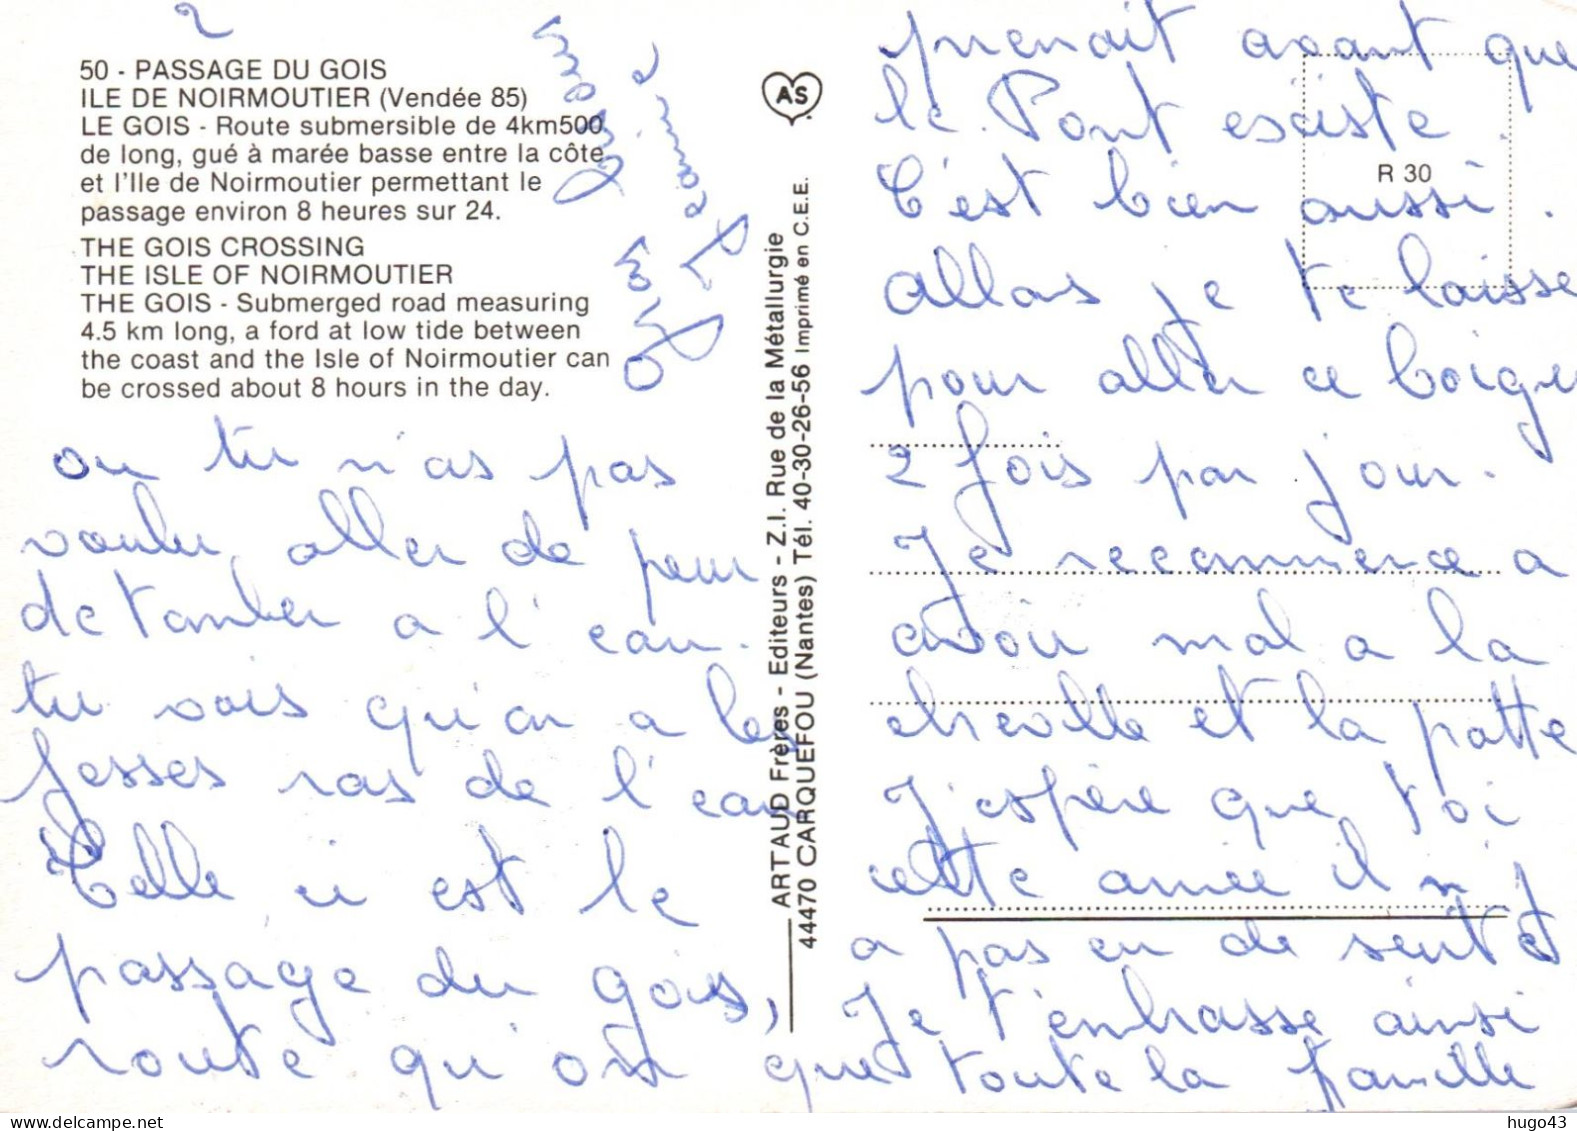 2
50 - PASSAGE DU GOIS
ILE DE NOIRMOUTIER (Vendée 85)
LE GOIS - Route submersible de 4km500
de long, gué à marée basse entre la côte
et l'Ile de Noirmoutier permettant le
passage environ 8 heures sur 24.
THE GOIS CROSSING
THE ISLE OF NOIRMOUTIER
THE GOIS - Submerged road measuring
4.5 km long, a ford at low tide between
the coast and the Isle of Noirmoutier can
be crossed about 8 hours in the day.
ou tu n'as pas
voulu aller de peur
de tomber a l'eau.
tu vois qu'on a les
fesses ras de l'eau
Celle ci est le
passage du gois,
route qu'on
AS
ARTAUD Frères - Editeurs - Z.I. Rue de la Métallurgie
44470 CARQUEFOU (Nantes) Tél. 40-30-26-56 Imprimé en C.E.E.
R 30
prenait avant que
le Pont existe.
C'est bien aussi.
allons je te laisse
pour aller ce
2 fois par jour.
Je recommence a
avoir mal a la
cheville et la patte
J'espère que toi
cette année il n'y
a pas eu de
Je t'embrasse ainsi
que toute la famille
Jeannine